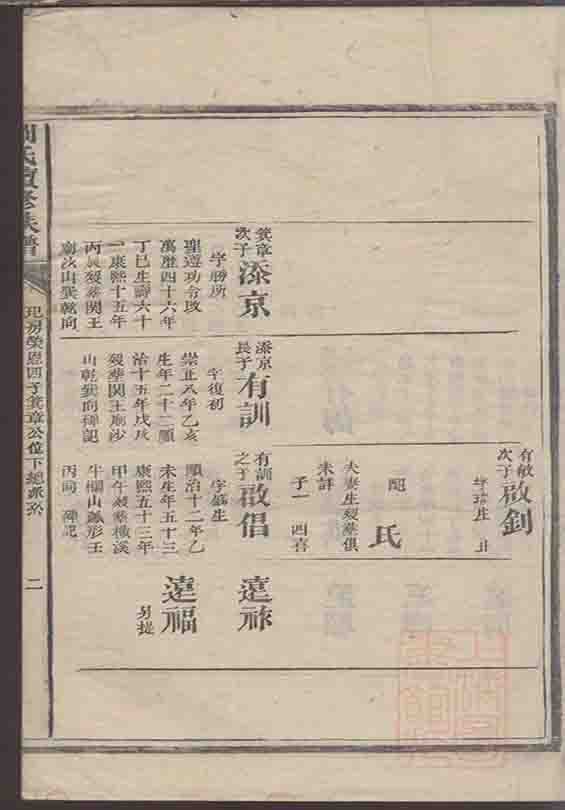 有敏
次子
啟釗
配
氏
夫妻生歿葬俱
未詳
子一 四喜
筭章
次子
添京
字勝所
聖遵功令改
萬歷四十六年
丁巳生壽六十
一康熙十五年
丙辰歿葬関王
廟沙山巽乾向
添京
長子
有訓
字復初
崇正八年乙亥
生年二十二順
治十五年戊戌
歿葬関王廟沙
山乾巽向碑記
有訓
之子
啟倡
字盛生
順治十二年乙
未生年五十三
康熙五十三年
甲午歿葬横溪
牛欄山瓢形壬
丙向 碑記
達祿
達福
另提
氏續修族譜
四子筭章公位下總派系
二